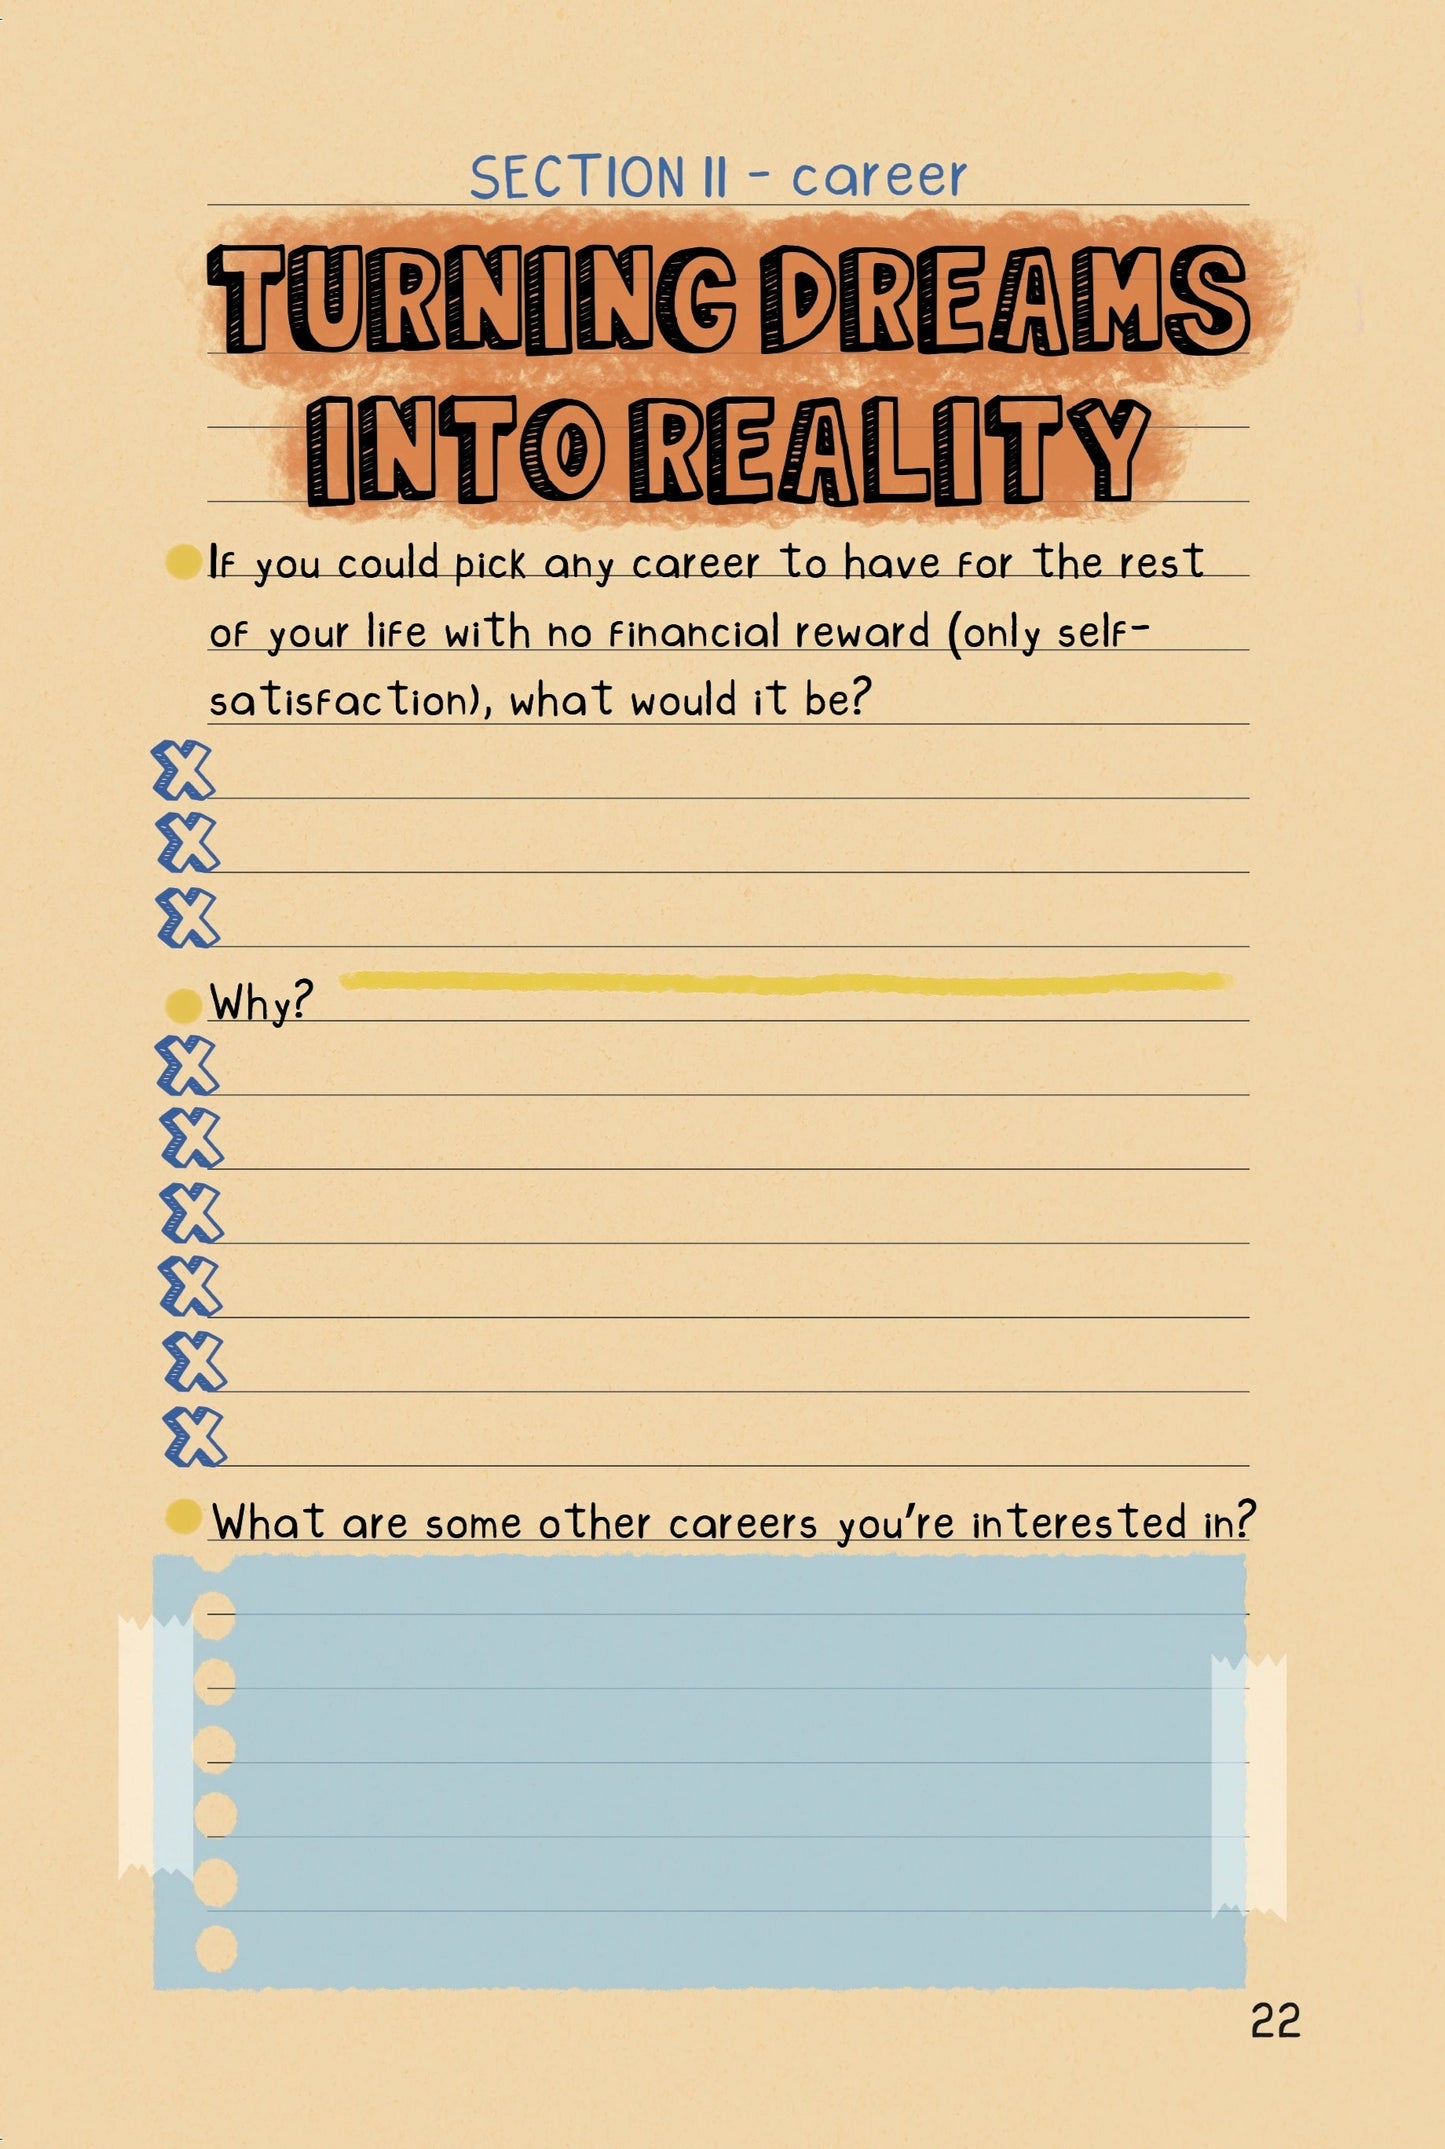 SECTION II - career
TURNING DREAMS
INTO REALITY
If you could pick any career to have for the rest
of your life with no financial reward (only self-
satisfaction), what would it be?
X
X
X
Why?
X
X
X
X
X
X
What are some other careers you're interested in?
22